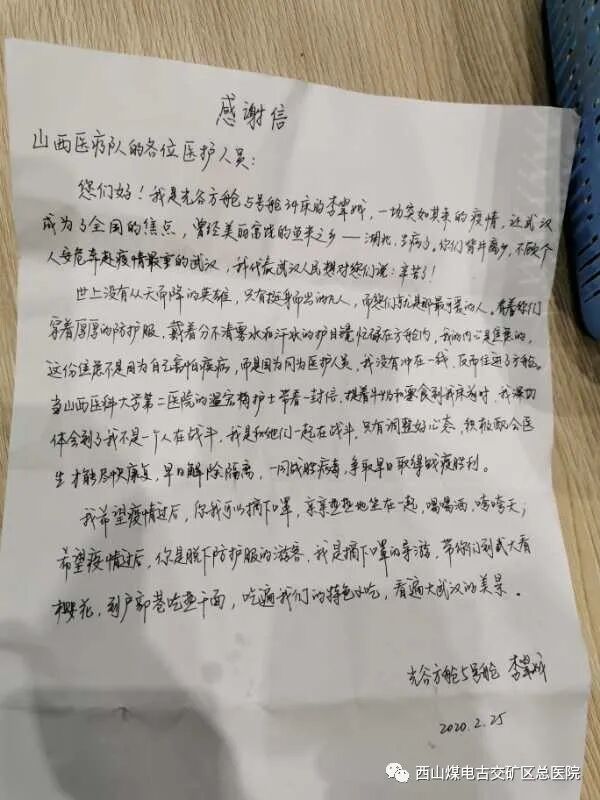 感谢信
山西医疗队的各位医护人员：
您们好！我是光谷方舱5号舱34床的李，一场突如其来的疫情，让武汉
成为了全国的焦点，曾经美丽富饶的鱼米之乡——湖北，生病了，你们背井离乡，不顾个
人安危奔赴疫情最重的武汉，我代表武汉人民想对您们说：辛苦了！
世上没有从天而降的英雄，只有挺身而出的凡人，而您们就是那最可爱的人。看着你们
穿着厚厚的防护服，戴着分不清雾水和汗水的护目镜忙碌在方舱内，我的内心是焦急的，
这份焦急不是因为自己害怕疾病，而是因为同为医护人员，我没有冲在一线，反而住进了方舱。
当山西医科大学第二医院的护士带着一封信，提着牛奶和零食到我床前时，我深切
体会到了我不是一个人在战斗，我是和他们一起在战斗，只有调整好心态，积极配合医
生才能尽快康复，早日解除隔离，一同战胜病毒，争取早日取得战疫胜利。
我希望疫情过后，你我可以摘下口罩，亲亲热热地坐在一起，喝喝酒，夸夸天；
希望疫情过后，你是脱下防护服的游客，我是摘下口罩的导游，带你们到武大看
樱花，到户部巷吃热干面，吃遍我们的特色小吃，看遍大武汉的美景。
光谷方舱5号舱 李
2020.2.25
西山煤电古交矿区总医院